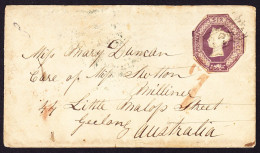 Miss Mary Duncan
Care of Mrs Newton
Milliner
Little Malop Street
Geelong
Australia